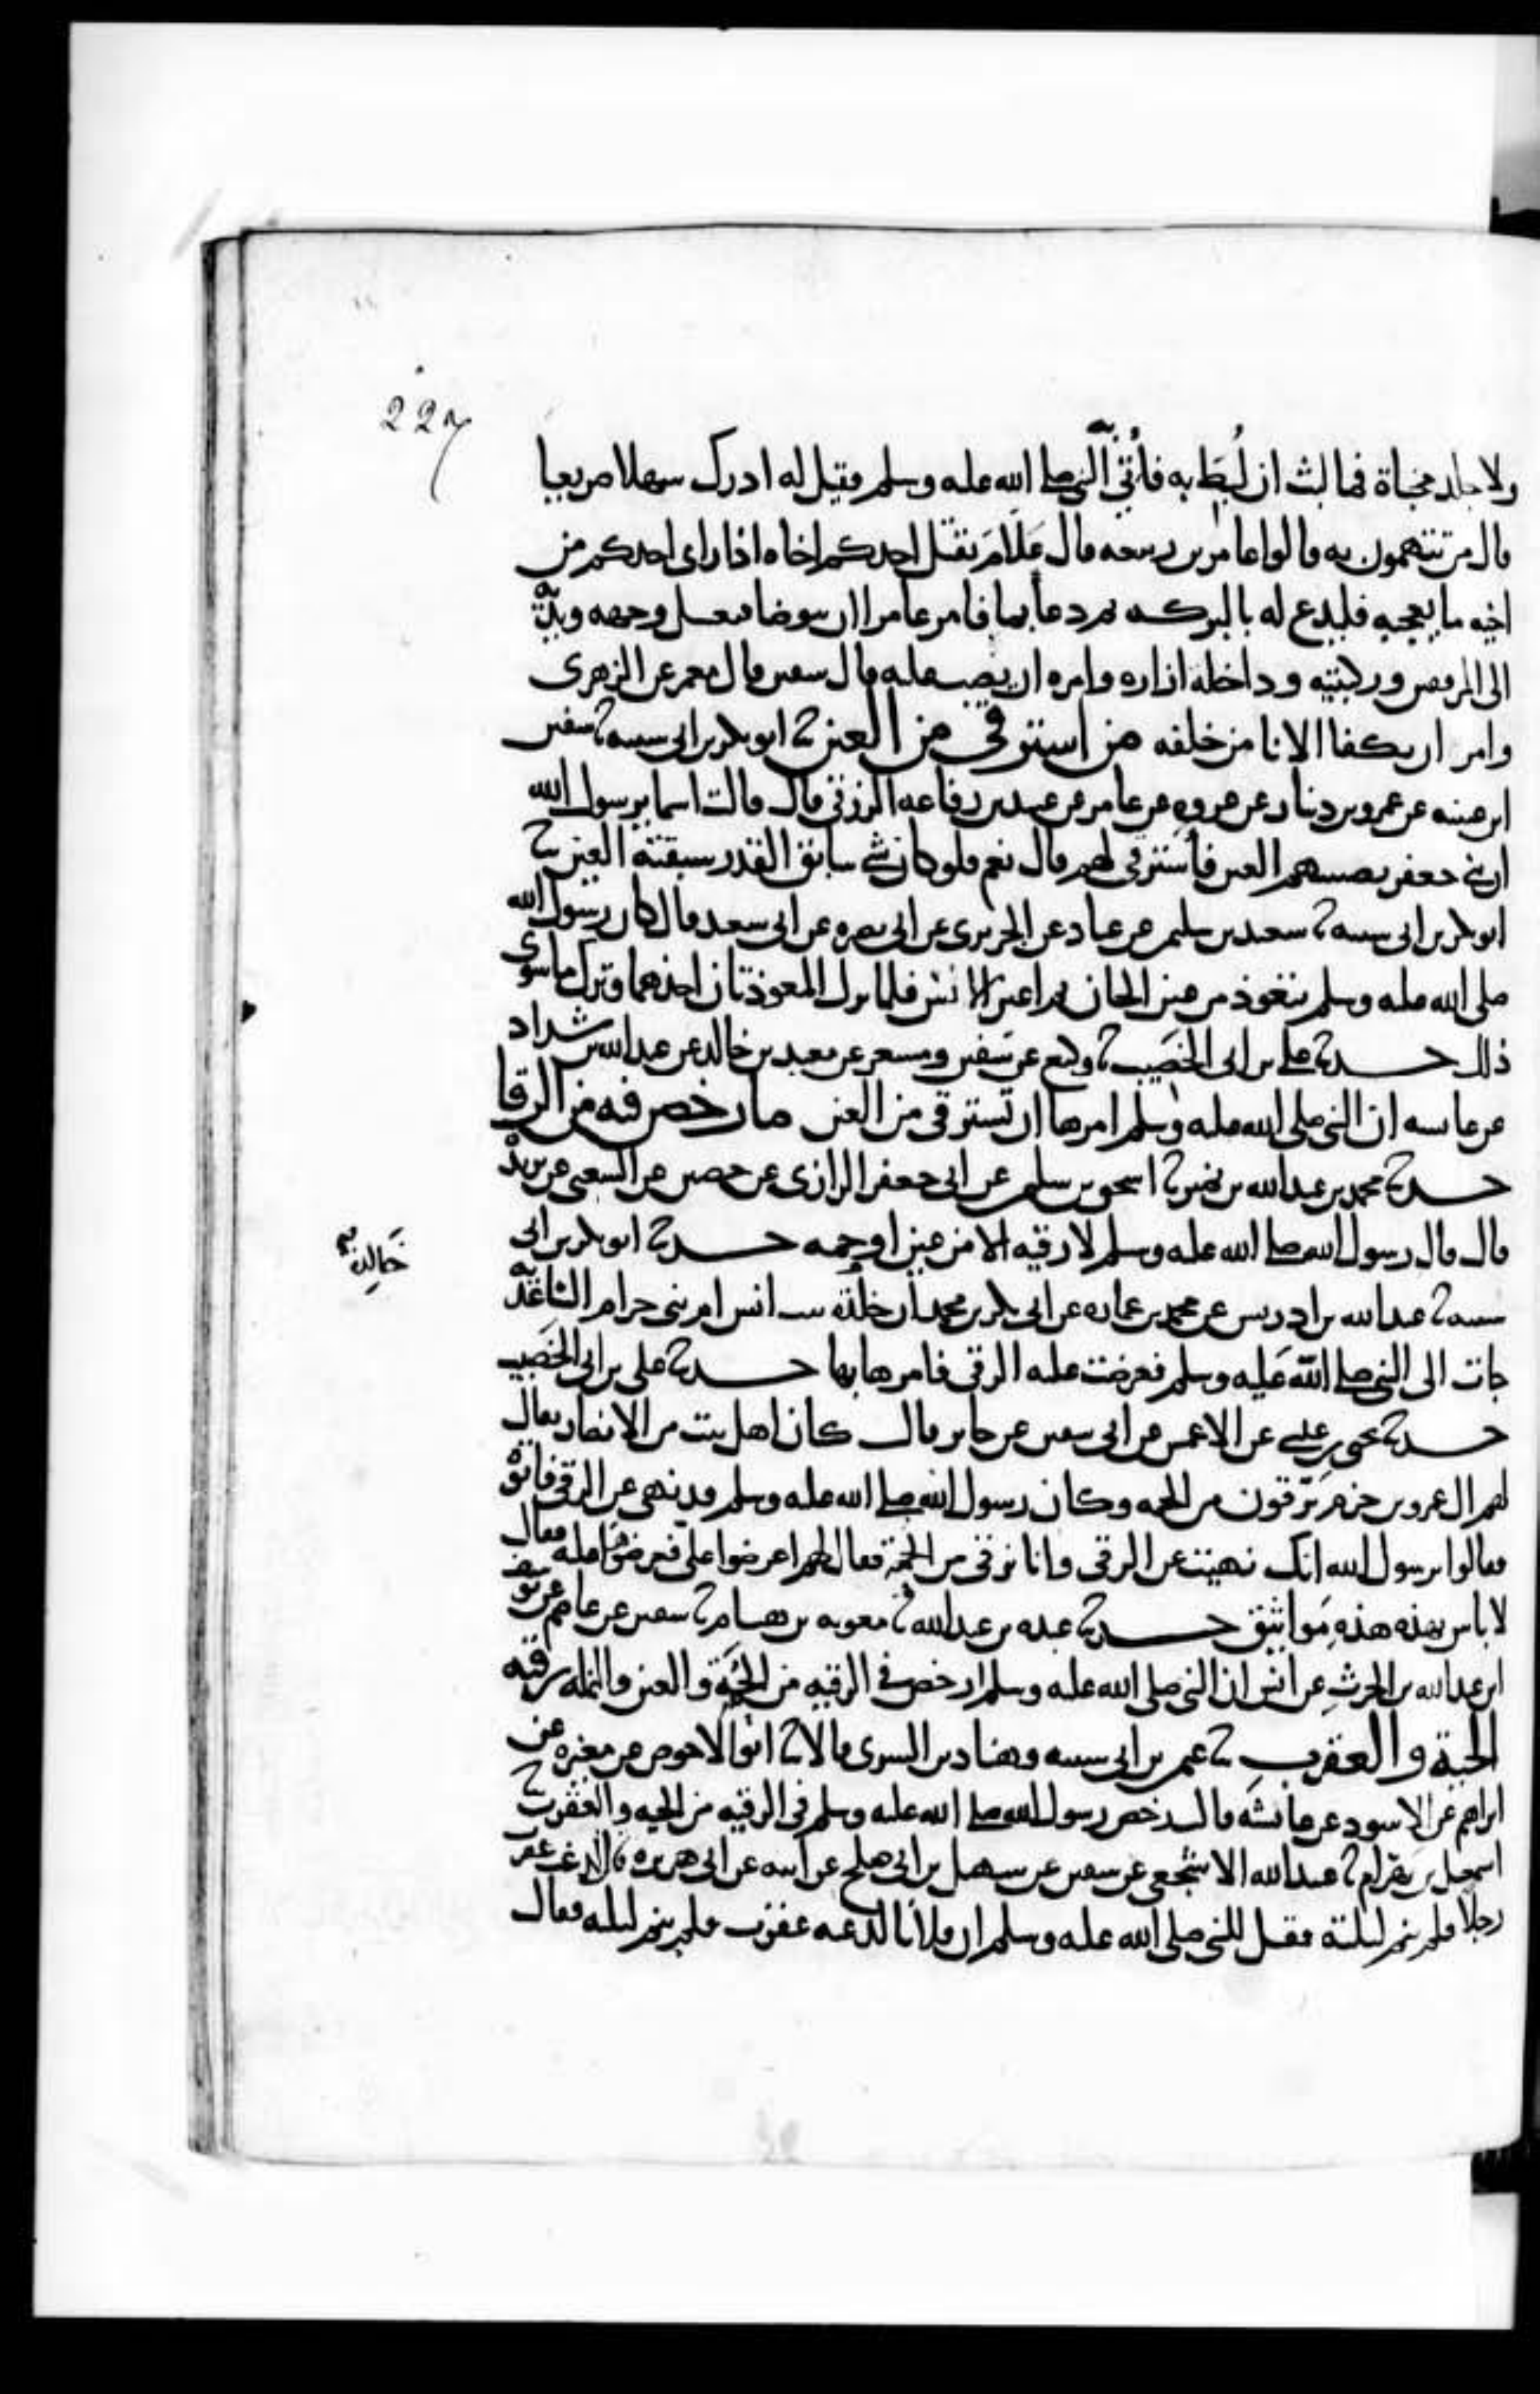 227
ولا جلد مخباة فما لبث ان لبط به فأتي به النبي صلى الله عليه وسلم فقيل له ادرك سهلا صريعا
قال من تتهمون به قالوا عامر بن ربيعه قال علام يقتل احدكم اخاه اذا راى احدكم من
اخيه ما يعجبه فليدع له بالبركه ثم دعا بما فامر عامرا ان يتوضا فيغسل وجهه ويديه
الى المرفقين وركبتيه وداخلة ازاره وامره ان يصب عليه قال سفين قال معمر عن الزهرى
وامر ان يكفا الانا من خلفه من استرقي من العين ثنا ابو بكر بن ابي شيبه ثنا سفين
ابن عيينه عن عمرو بن دينار عن عروه عن عامر عن عبيد بن رفاعه الزرقي قال قالت اسما يرسول الله
ان بني جعفر يصيبهم العين فأسترقي لهم قال نعم فلو كان شي سابق القدر سبقته العين ثنا
ابو بكر بن ابي شيبه ثنا سعيد بن سليم عن عباد عن الجريرى عن ابي نضره عن ابي سعيد قال كان رسول الله
صلى الله عليه وسلم يتعوذ من عين الجان ثم اعين الانس فلما نزل المعوذتان اخذهما وترك ما سوى
ذلك حدثنا علي بن ابي الخصيب ثنا وكيع عن سفين ومسعر عن معبد بن خالد عن عبد الله بن شداد
عن عايشه ان النبي صلى الله عليه وسلم امرها ان تسترقي من العين ما رخص فيه من الرقا
حدثنا محمد بن عبد الله بن نمير ثنا اسحق بن سليم عن ابي جعفر الرازى عن حصين عن الشعبي عن بريدة
قال قال رسول الله صلى الله عليه وسلم لا رقيه الا من عين او حمه حدثنا ابو بكر بن ابي
خالدة
شيبه ثنا عبد الله بن ادريس عن محمد بن عماره عن ابي بكر بن محمد ان خلدة بنت انس ام بني حزام الساعدية
جات الى النبي صلى الله عليه وسلم فعرضت عليه الرقى فامرها بها حدثنا علي بن ابي الخصيب
حدثنا يحيى بن عيسى عن الاعمش عن ابي سفين عن جابر قال كان اهل بيت من الانصار يقال
لهم ال عمرو بن حزم يرقون من الحمه وكان رسول الله صلى الله عليه وسلم قد نهى عن الرقى فاتوه
فقالوا يرسول الله انك نهيت عن الرقى وانا نرقي من الحمة فقال لهم اعرضوا علي فعرضوها عليه فقال
لا باس بهذه هذه مواثيق حدثنا عبده بن عبد الله ثنا معويه بن هشام ثنا سفين عن عاصم عن يوسف
ابن عبد الله بن الحرث عن انس ان النبي صلى الله عليه وسلم ارخص في الرقيه من الحمة والعين والنمله رقيه
الحية والعقرب ثنا عثمن بن ابي شيبه وهناد بن السرى قالا ثنا ابو الاحوص عن مغيره عن
ابراهيم عن الاسود عن عائشه قالت رخص رسول الله صلى الله عليه وسلم في الرقيه من الحيه والعقرب ثنا
اسمعيل بن بهرام ثنا عبيد الله الاشجعي عن سفين عن سهيل بن ابي صلح عن ابيه عن ابي هريره قال لدغت عقرب
رجلا فلم ينم ليلته فقيل للنبي صلى الله عليه وسلم ان فلانا لدغه عقرب فلم ينم ليلته فقال